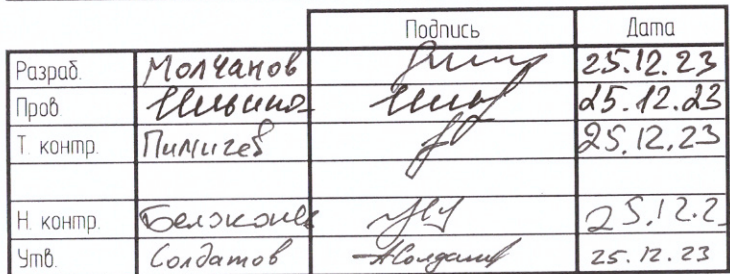 Подпись Дата
Разраб. Молчанов 25.12.23
Пров. Ильина 25.12.23
Т. контр. Пимигев 25.12.23
Н. контр. 25.12.2
Утв. Солдатов 25.12.23